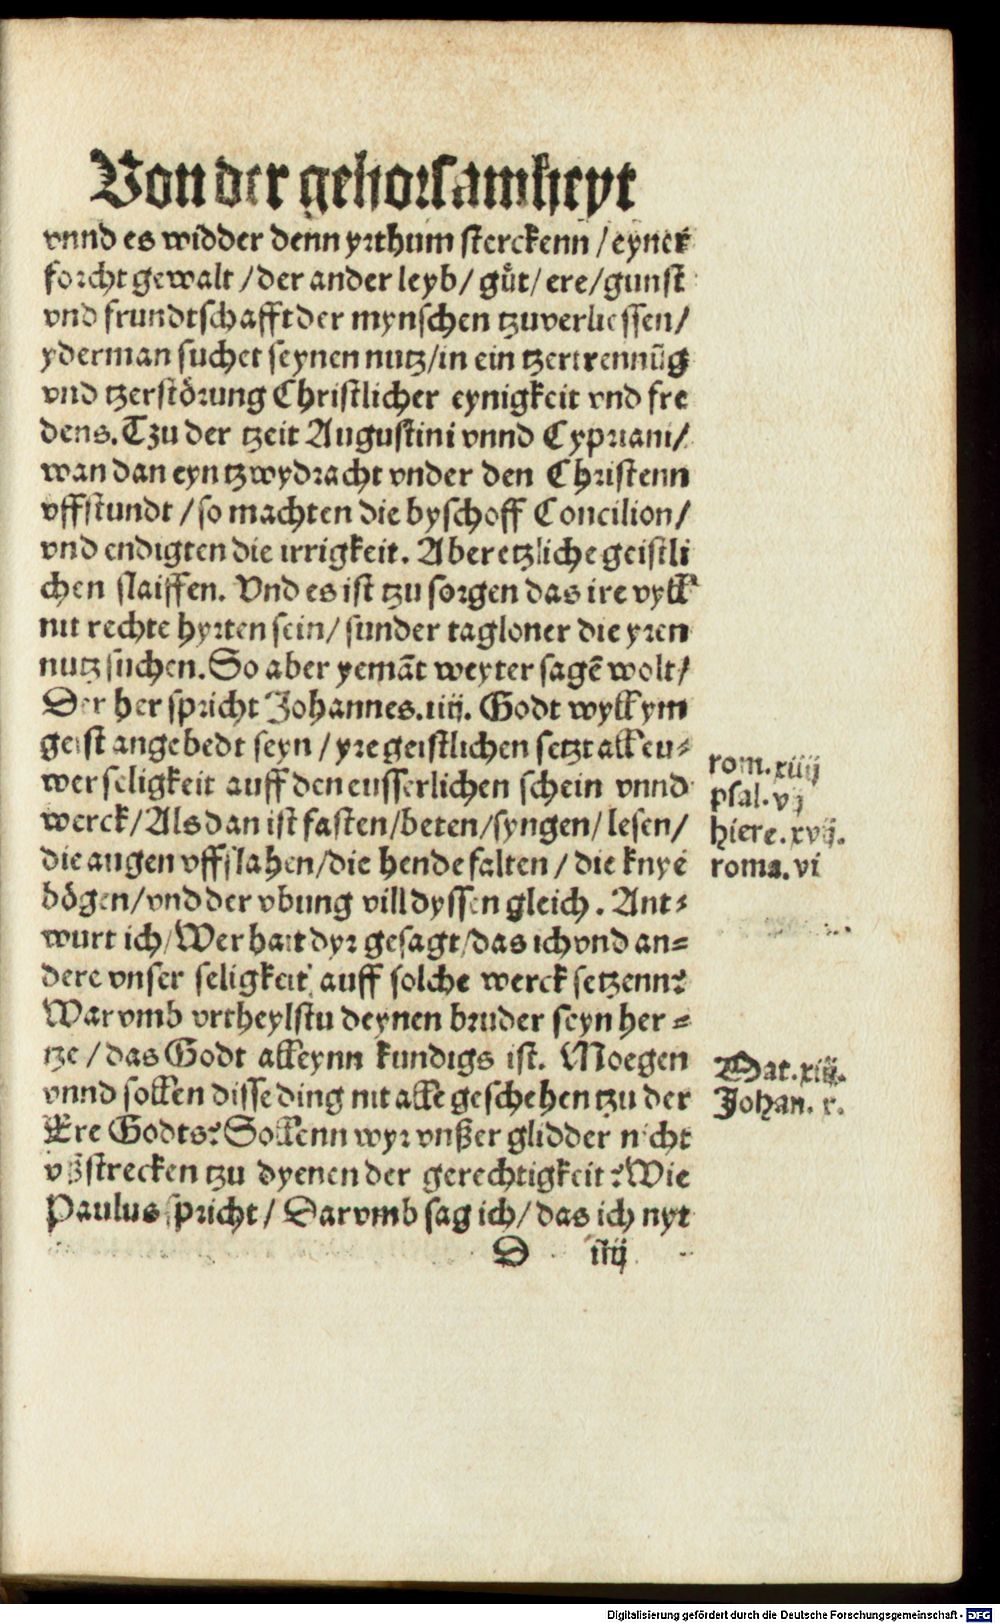 Von der gehorsamkeyt
vnnd es widder denn yrthum sterckenn / eyner
forcht gewalt / der ander leyb / gůt / ere / gunst
vnd frundtschafft der mynschen tzuverliessen /
yderman suchet seynen nutz / in ein tzertrennūg
vnd tzerstörung Christlicher eynigkeit vnd fre
dens. Tzu der tzeit Augustini vnnd Cypriani /
wan dan eyn tzwydracht vnder den Christenn
vffstundt / so machten die byschoff Concilion /
vnd endigten die irrigkeit. Aber etzliche geistli
chen slaiffen. Vnd es ist tzu sorgen das ire vyll
nit rechte hyrten sein / sunder tagloner die yren
nutz suchen. So aber yemāt weyter sagē wolt /
Der her spricht Johannes. iiij. Godt wyll ym
geist angebedt seyn / yre geistlichen setzt all eu⸗
wer seligkeit auff den eusserlichen schein vnnd
werck / Als dan ist fasten / beten / syngen / lesen /
die augen vffslahen / die hende falten / die knye
bögen / vnd der vbung vill dyssen gleich. Ant⸗
wurt ich / Wer hait dyr gesagt / das ich vnd an⸗
dere vnser seligkeit auff solche werck setzenn?
Warvmb vrtheylstu deynen bruder seyn her⸗
tze / das Godt alleynn kundigs ist. Moegen
vnnd sollen disse ding nit alle geschehen tzu der
Ere Godts? Sollenn wyr vnßer glidder nicht
vßstrecken tzu dyenen der gerechtigkeit? Wie
Paulus spricht / Darvmb sag ich / das ich nyt
D iiij
rom. xiiij
psal. vij
hiere. xvij.
roma. vi
Mat. xiij.
Johan. x.
Digitalisierung gefördert durch die Deutsche Forschungsgemeinschaft - DFG